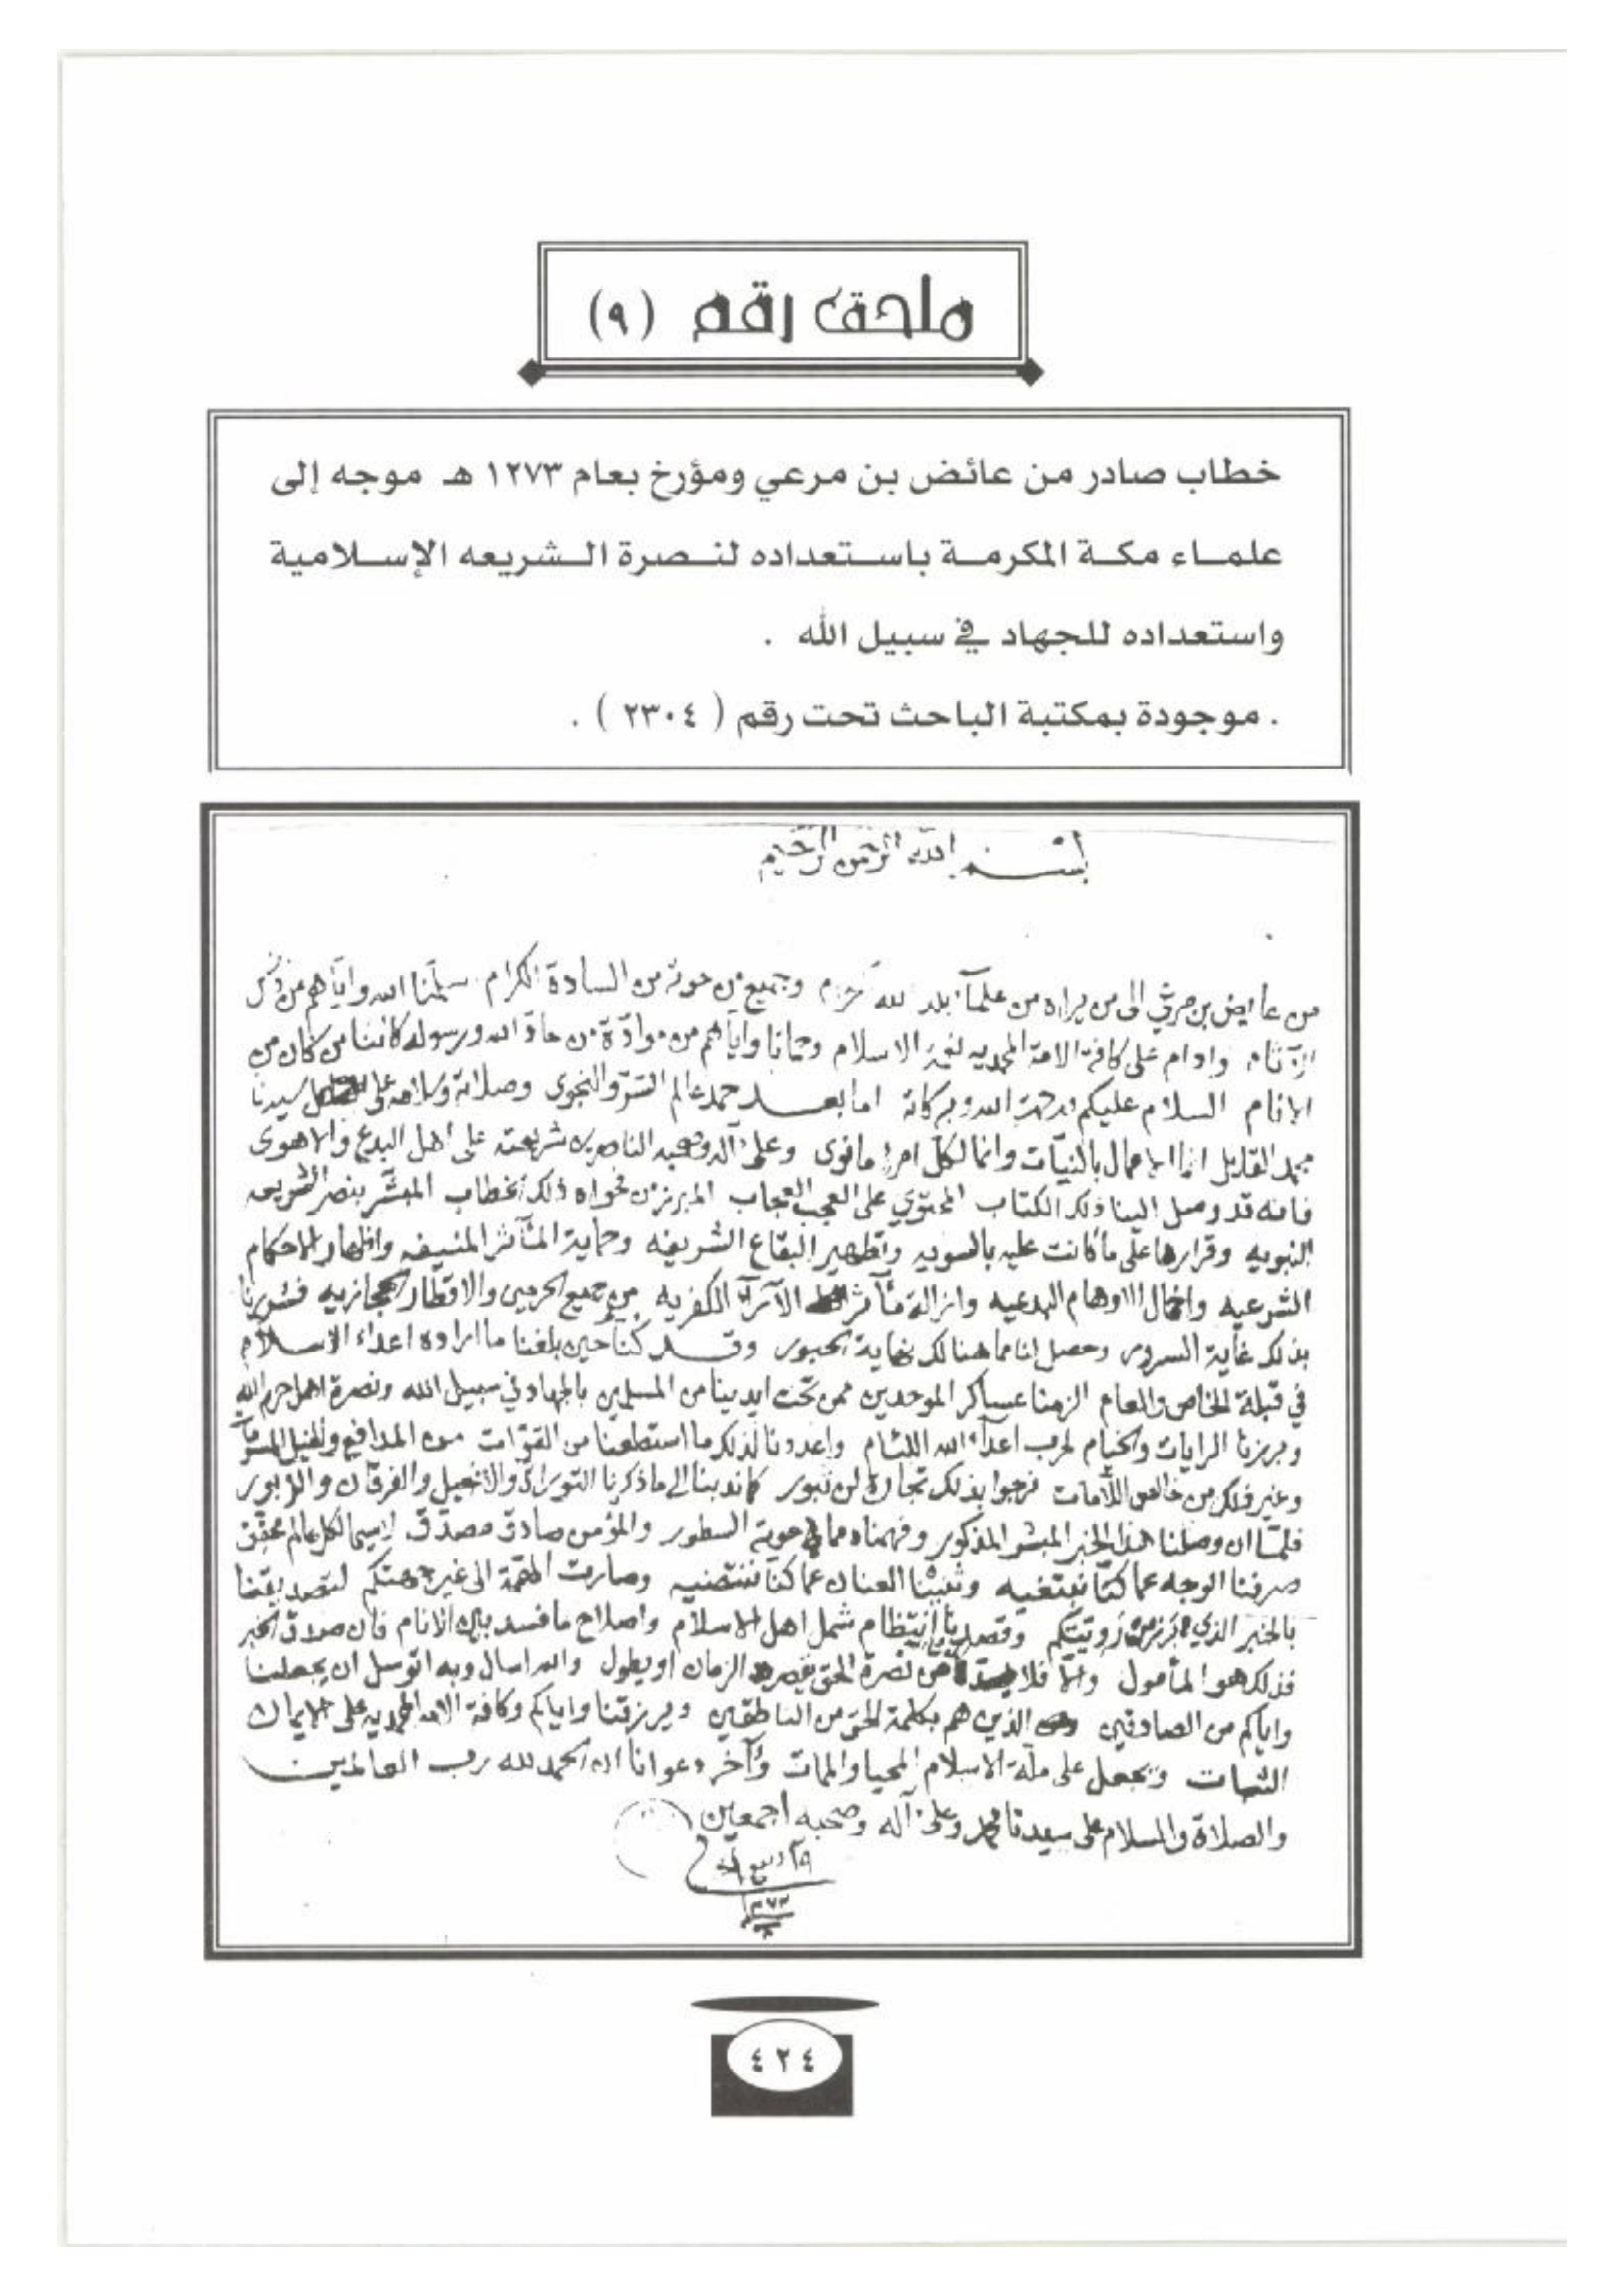 ملحق رقم (٩)
خطاب صادر من عائض بن مرعي ومؤرخ بعام ١٢٧٣ هـ موجه إلى
علماء مكة المكرمة باستعداده لنصرة الشريعه الإسلامية
واستعداده للجهاد في سبيل الله .
. موجودة بمكتبة الباحث تحت رقم ( ٢٣٠٤ ) .
بسم الله الرحمن الرحيم
من عايض بن مرعي الى من يراه من علمآء بلد الله وجميع من حوته من السادة الكرام سلمنا الله واياهم من
وادام على كافة الامة المحمديه نعمة الاسلام وحمانا واياهم من موادّة من حادّ الله ورسوله كائنا من كان من
الانام السلام عليكم ورحمت الله وبركاته اما بعد حمد عالم السرّ والنجوى وصلاته وسلامه على سيدنا
محمد القايل انما الاعمال بالنيّات وانما لكل امرء ما نوى وعلى آله وصحبه الناصرين شريعته على اهل البدع والاهوى
فانه قد وصل الينا ذلك الكتاب المحتوي على العجب العجاب المبرز من فحواه ذلك الخطاب المبشّر بنصر الشريعه
النبويه وقرارها على ما كانت عليه بالسويه وتطهير البقاع الشريفه وحماية المآثر المنيفه واظهار الاحكام
الشرعيه واخمال الاوهام البدعيه وازالة مآثر الآرآء الكفريه من جميع الحرمين والاقطار الحجازيه فسُررنا
بذلك غاية السرور وحصل لنا مما هنالك نهاية الحبور وقد كنا حين بلغنا ما اراده اعداء الاسلام
في قبلة الخاص والعام الزمنا عساكر الموحدين ممن تحت ايدينا من المسلمين بالجهاد في سبيل الله ونصرة اهل حرم الله
وبرزنا الرايات والخيام لحرب اعدآء الله اللئام واعددنا لذلك ما استطعنا من القوّات من المدافع والخيل
وغير ذلك من خالص اللأمات نرجوا بذلك تجارة لن تبور كما ندبنا الى ما ذكرنا التوراة والانجيل والفرقان والزبور
فلمّا ان وصلنا هذا الخبر المبشر المذكور وفهمناه مما حوته السطور والمؤمن صادق مصدّق لاسيما لكل عالم محقق
صرفنا الوجه عما كنّا نبتغيه وثنينا العنان عما كنّا ننتضيه وصارت الهمّة الى غير جهتكم لتصديقنا
بالخبر الذي برز من رويتكم وقصدنا انتظام شمل اهل الاسلام واصلاح ما فسد بين الانام فان صدق الخبر
فذلك هو المأمول والا فلا بد من نصرة الحق يقصر الزمان او يطول والله اسال وبه اتوسل ان يجعلنا
واياكم من الصادقين الذين هم بكلمة الحق من الناطقين ويرزقنا واياكم وكافة الامه المحمديه على الايمان
الثبات ويجعل على ملّة الاسلام المحيا والممات وآخر دعوانا ان الحمد لله رب العالمين
والصلاة والسلام على سيدنا محمد وعلى آله وصحبه اجمعين
٤٢٤